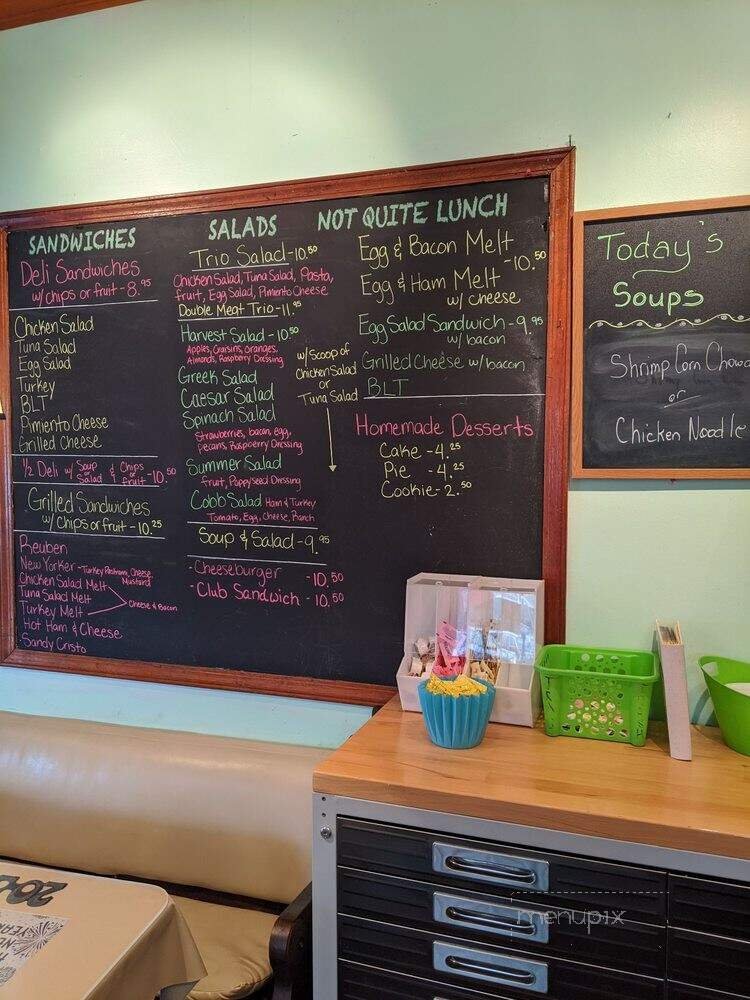 SANDWICHES
Deli Sandwiches
w/ chips or fruit - 8.95
Chicken Salad
Tuna Salad
Egg Salad
Turkey
BLT
Pimiento Cheese
Grilled Cheese
1/2 Deli w/ Soup or Salad & Chips or fruit - 10.50
Grilled Sandwiches
w/ Chips or fruit - 10.25
Reuben
New Yorker - Turkey, Pastrami, Cheese, Mustard
Chicken Salad Melt
Tuna Salad Melt
Turkey Melt
Cheese & Bacon
Hot Ham & Cheese
Sandy Cristo
SALADS
Trio Salad - 10.50
Chicken Salad, Tuna Salad, Pasta,
fruit, Egg Salad, Pimiento Cheese
Double Meat Trio - 11.95
Harvest Salad - 10.50
Apples, Craisins, Oranges,
Almonds, Raspberry Dressing
Greek Salad
Caesar Salad
Spinach Salad
Strawberries, bacon, egg,
pecans, Raspberry Dressing
Summer Salad
fruit, Poppyseed Dressing
Cobb Salad Ham & Turkey
Tomato, Egg, Cheese, Ranch
w/ scoop of
Chicken Salad
or
Tuna Salad
Soup & Salad - 9.95
- Cheeseburger - 10.50
- Club Sandwich - 10.50
NOT QUITE LUNCH
Egg & Bacon Melt
Egg & Ham Melt - 10.50
w/ cheese
Egg Salad Sandwich - 9.95
w/ bacon
Grilled Cheese w/ bacon
BLT
Homemade Desserts
Cake - 4.25
Pie - 4.25
Cookie - 2.50
Today's
Soups
Shrimp Corn Chowd
or
Chicken Noodle
menupix